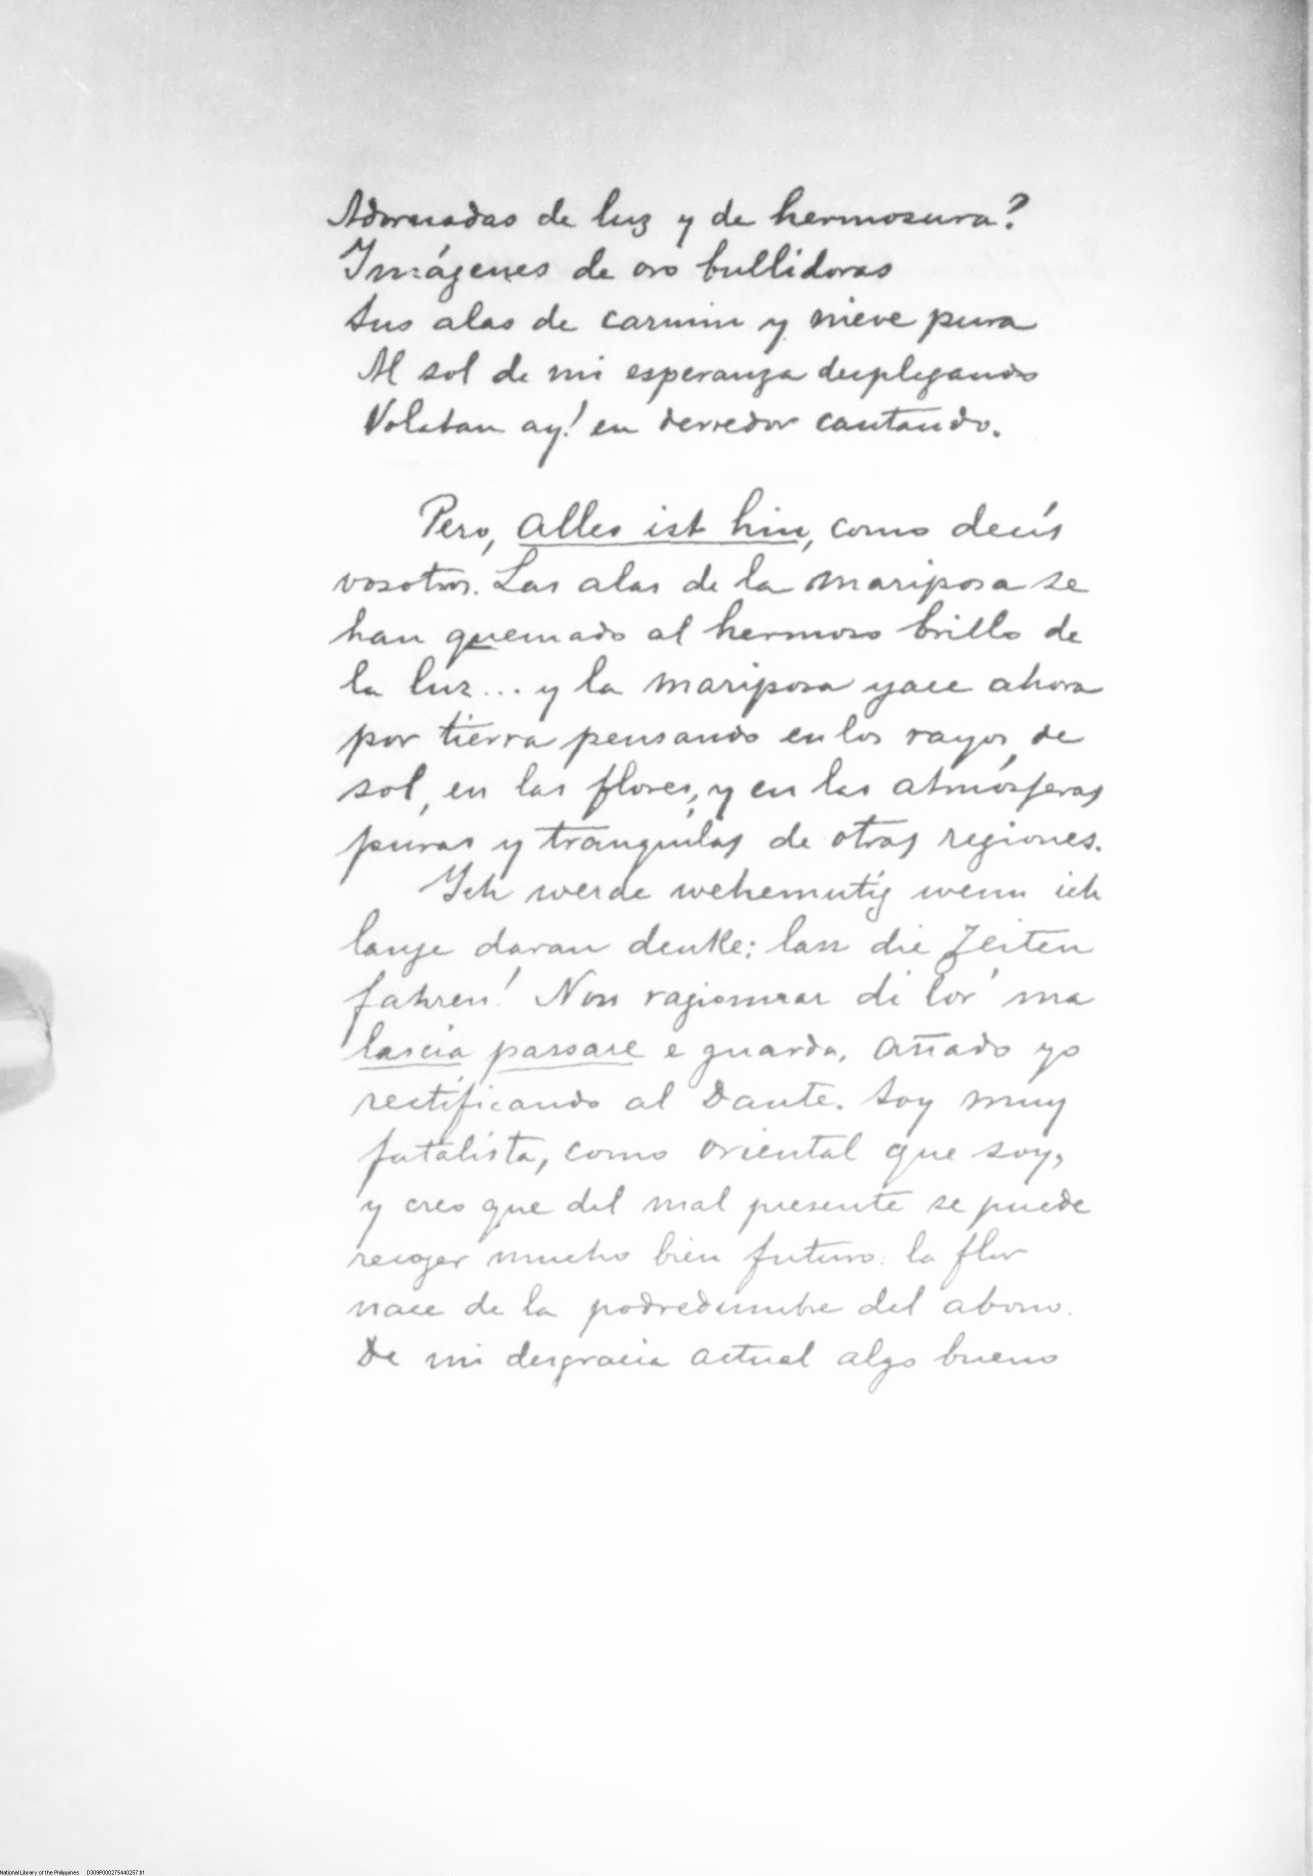 Adornadas de luz y de hermosura?
Imágenes de oro bullidoras
Sus alas de carmin y nieve pura
Al sol de mi esperanza desplegando
Volaban ay! en derredor cantando.
Pero, Alles ist hin, como decís
vosotros. Las alas de la mariposa se
han quemado al hermoso brillo de
la luz... y la mariposa yace ahora
por tierra pensando en los rayos de
sol, en las flores, y en las atmósferas
puras y tranquilas de otras regiones.
Ich werde wehemutig wenn ich
lange daran denke; lass die Zeiten
fahren! Non ragionar di lor' ma
lascia passare e guarda, añado yo
rectificando al Dante. Soy muy
fatalista, como oriental que soy,
y creo que del mal presente se puede
recoger mucho bien futuro: la flor
nace de la podredumbre del abono.
De mi desgracia actual algo bueno
National Library of the Philippines D309P000275440257.tif